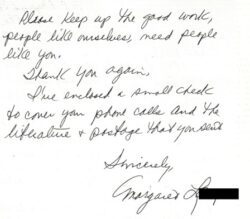 Please keep up the good work,
people like ourselves, need people
like you.
Thank you again,
I've enclosed a small check
to cover your phone calls and the
literature & postage that you sent
Sincerely,
Margaret